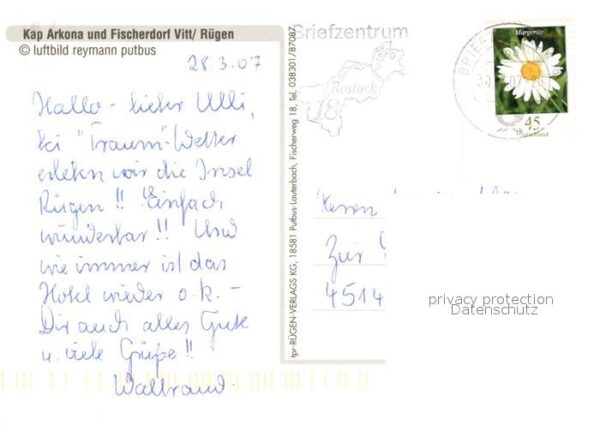 Kap Arkona und Fischerdorf Vitt/ Rügen
© luftbild reymann putbus
28.3.07
Hallo - lieber Ulli,
bei "Traum"-Wetter
erleben wir die Insel
Rügen!! Einfach
wunderbar!! Und
wie immer ist das
Hotel wieder o.k. -
Dir auch alles Gute
u. viele Grüße!!
Waltraud
fpr-RÜGEN-VERLAGS KG, 18581 Putbus-Lauterbach, Fischerweg 18, Tel. 038301/87087
Briefzentrum
Rostock
18
BRIEF
Margerite
45
Deutschland
Herrn
Zur
4514
privacy protection
Datenschutz